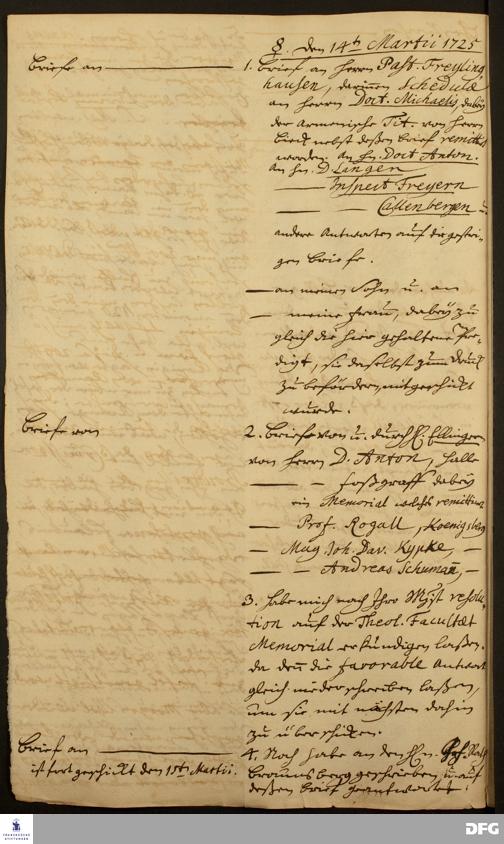 ☿. Den 14th Martii 1725
Briefe an
1. Brief an Herrn Past. Freyling
hausen, darinnen Schedula
an Herrn Doct. Michaelis, dabey
der Armenische Tit. von Herrn
nebst deßen Brief remittirt
worden. An Hn. Doct Anton.
An Hn. D Langen
Inspect Freyern
Callenbergen u.
andere Antworten auf die gestri-
gen Briefe.
— an meinen Sohn u. an
— meine Frau, dabey zu
gleich die hier gehaltene Pre-
digt, sie daselbst zum Druck
zu befördern, mitgeschickt
wurde.
Briefe von
2. Briefe von u. durch H. Ellinger
von Herrn D. Anton, Halle
— — dabey
ein Memorial welches remittirt
— Prof. Rogall, Koenigsberg
— Mag Joh. Dav. Kypke, —
— — Andreas Schumañ, —
3. Habe mich nach Ihro Mjst resolu-
tion auf der Theol. Facultæt
Memorial erkundigen laßen.
da denn die favorable Antwort
gleich niederschreiben laßen,
um sie mit nächsten dahin
zu überschicken.
Brief an
ist fortgeschickt den 15t. Martii.
4. Noch habe an den Hn.
geschrieben, u. auf
deßen Brief geantwortet.
FRANCKESCHE STIFTUNGEN
DFG